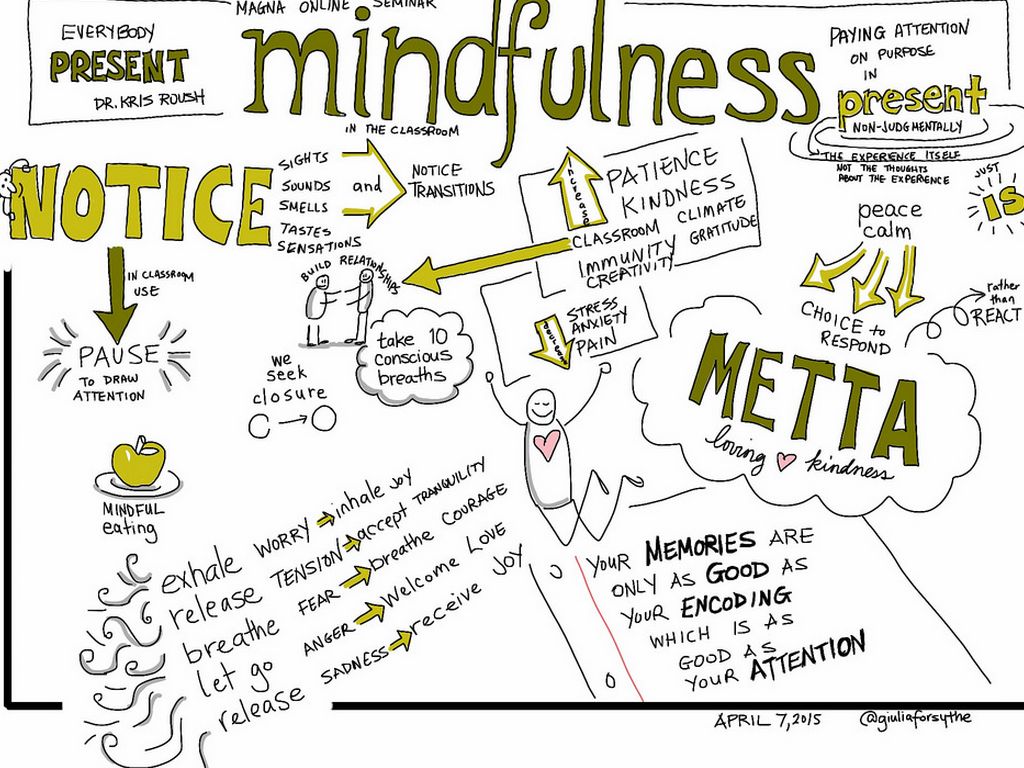 MAGNA ONLINE SEMINAR
EVERYBODY
PRESENT
DR. KRIS ROUSH
mindfulness
IN THE CLASSROOM
PAYING ATTENTION
ON PURPOSE
IN
present
NON-JUDGMENTALLY
THE EXPERIENCE ITSELF
NOT THE THOUGHTS
ABOUT THE EXPERIENCE
JUST
IS
NOTICE
SIGHTS
SOUNDS
SMELLS
TASTES
SENSATIONS
and
NOTICE
TRANSITIONS
increase
PATIENCE
KINDNESS
CLASSROOM CLIMATE
IMMUNITY GRATITUDE
CREATIVITY
BUILD RELATIONSHIPS
STRESS
ANXIETY
PAIN
peace
calm
CHOICE to
RESPOND
rather
than
REACT
IN CLASSROOM
USE
PAUSE
TO DRAW
ATTENTION
take 10
conscious
breaths
we
seek
closure
METTA
loving kindness
MINDFUL
eating
exhale WORRY inhale JOY
release TENSION accept TRANQUILITY
breathe FEAR breathe COURAGE
let go ANGER Welcome LOVE
release SADNESS receive JOY
YOUR MEMORIES ARE
ONLY AS GOOD AS
YOUR ENCODING
WHICH IS AS
GOOD AS
YOUR ATTENTION
APRIL 7, 2015
@giuliaforsythe